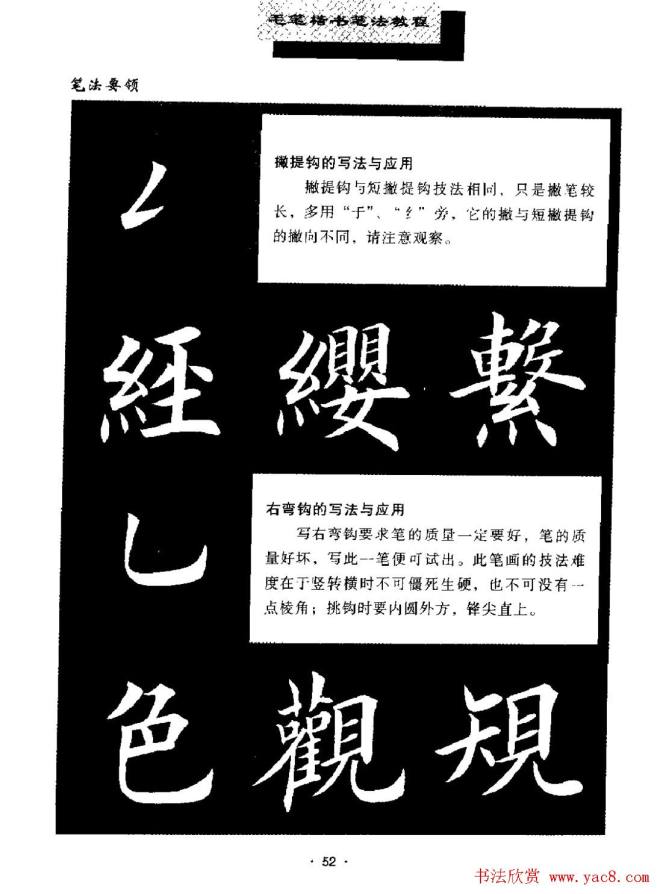 毛笔楷书笔法教程
笔法要领
撇提钩的写法与应用
撇提钩与短撇提钩技法相同，只是撇笔较
长，多用“子”、“纟”旁，它的撇与短撇提钩
的撇向不同，请注意观察。
經 纓 繫
右弯钩的写法与应用
写右弯钩要求笔的质量一定要好，笔的质
量好坏，写此一笔便可试出。此笔画的技法难
度在于竖转横时不可僵死生硬，也不可没有一
点棱角；挑钩时要内圆外方，锋尖直上。
色 觀 規
· 52 ·
书法欣赏 www.yac8.com